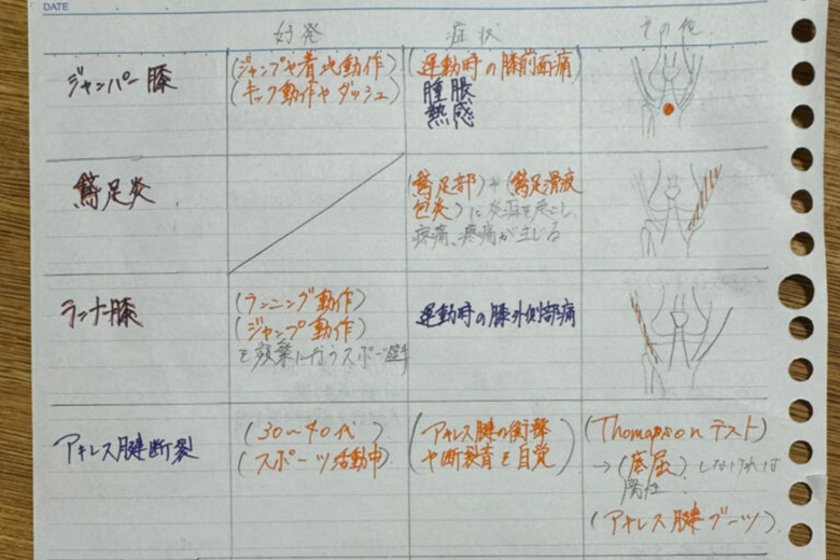 DATE
好発 症状 その他
ジャンパー膝
(ジャンプや着地動作)
(キック動作やダッシュ)
(運動時の膝前面痛)
腫脹
熱感
鵞足炎
(鵞足部)や(鵞足滑液
包炎)に炎症を起こし、
疼痛、疼痛が生じる
ランナー膝
(ランニング動作)
(ジャンプ動作)
を頻繁に行うスポーツ選手
運動時の膝外側部痛
アキレス腱断裂
(30〜40代)
(スポーツ活動中)
(アキレス腱の衝撃
や断裂音を自覚)
(Thompsonテスト)
→(底屈)しなければ
陽性.
(アキレス腱ブーツ)